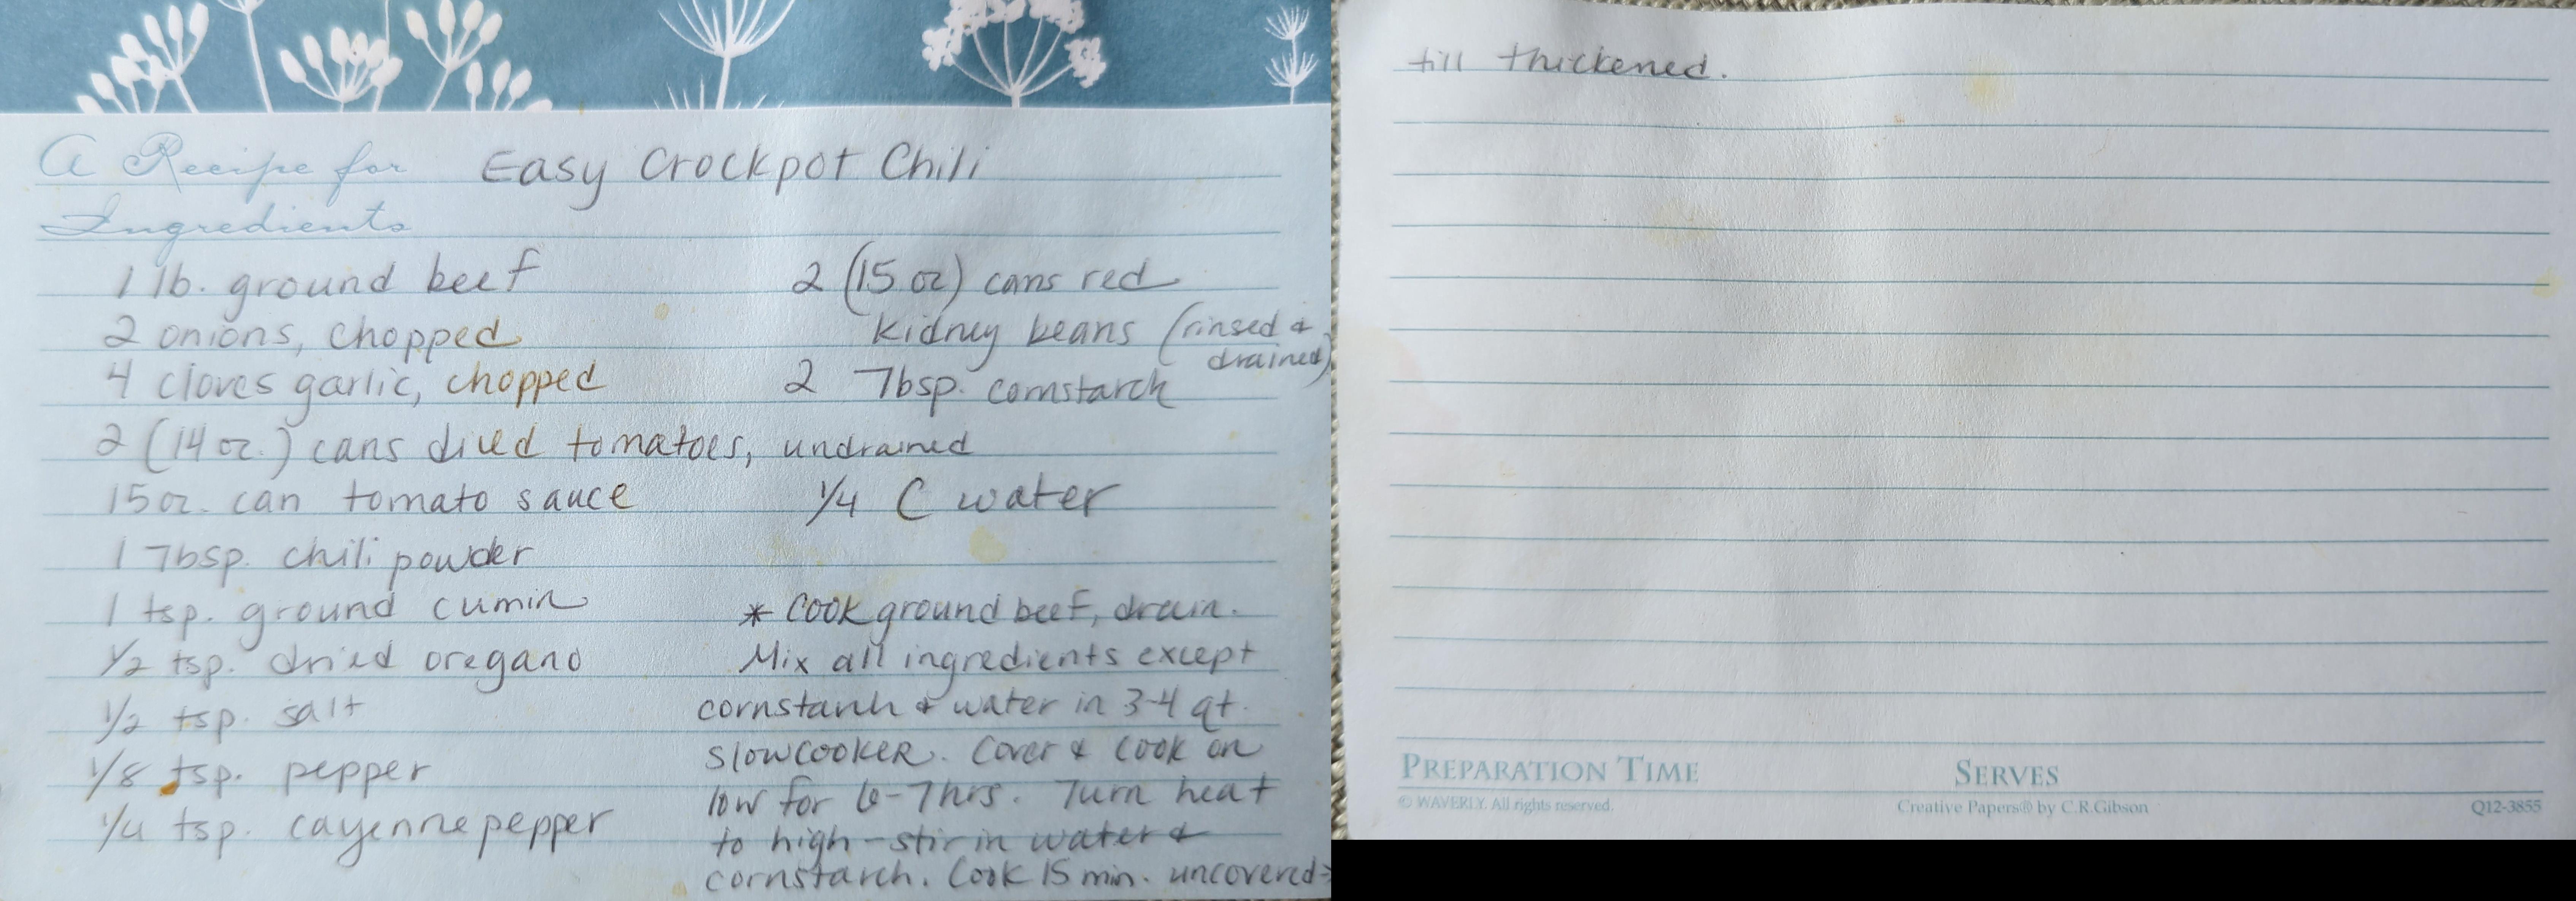 A Recipe for Easy Crockpot Chili
Ingredients
1 lb. ground beef
2 onions, chopped
4 cloves garlic, chopped
2 (14 oz.) cans diced tomatoes, undrained
15 oz. can tomato sauce
1 Tbsp. chili powder
1 tsp. ground cumin
1/2 tsp. dried oregano
1/2 tsp. salt
1/8 tsp. pepper
1/4 tsp. cayenne pepper
2 (15 oz) cans red
kidney beans (rinsed &
drained)
2 Tbsp. cornstarch
1/4 C water
* Cook ground beef, drain.
Mix all ingredients except
cornstarch & water in 3-4 qt.
slowcooker. Cover & cook on
low for 6-7 hrs. Turn heat
to high - stir in water &
cornstarch. Cook 15 min. uncovered→
till thickened.
PREPARATION TIME
SERVES
© WAVERLY. All rights reserved.
Creative Papers® by C.R.Gibson
Q12-3855